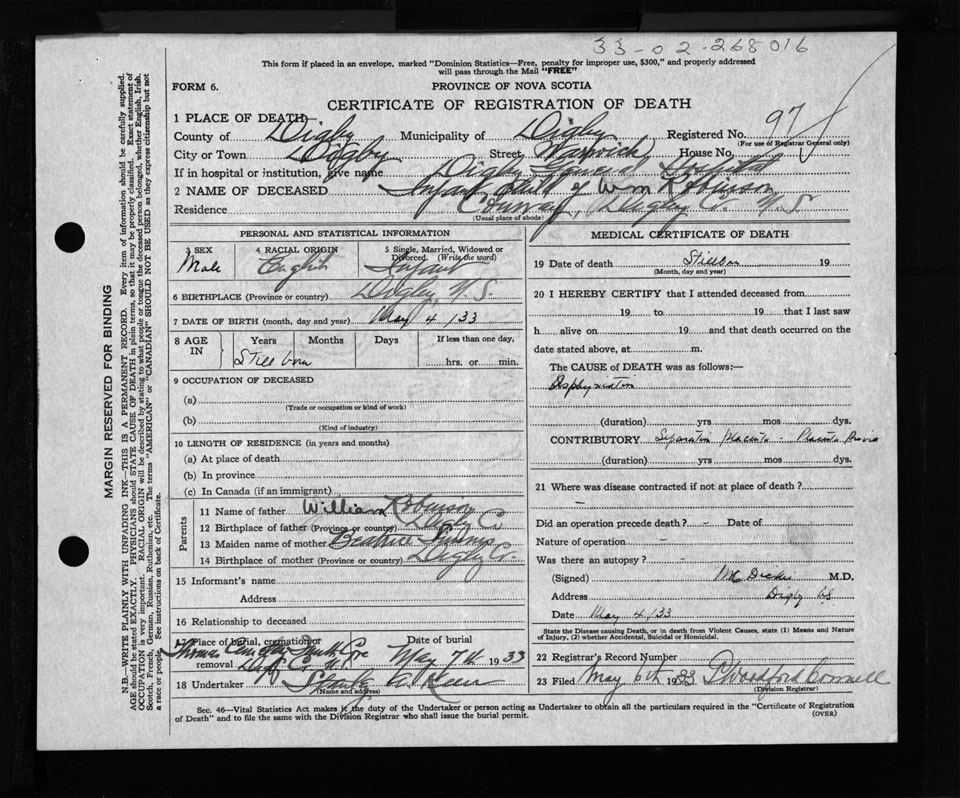 33-02-268016
This form if placed in an envelope, marked "Dominion Statistics—Free, penalty for improper use, $300," and properly addressed
will pass through the Mail "FREE"
FORM 6.
PROVINCE OF NOVA SCOTIA
CERTIFICATE OF REGISTRATION OF DEATH
1 PLACE OF DEATH
County of Digby Municipality of Digby Registered No. 97
(For use of Registrar General only)
City or Town Digby Street Warwick House No.
If in hospital or institution, give name Digby General Hospital
2 NAME OF DECEASED Infant Child of Wm Robinson
Residence Conway, Digby Co. N.S.
(Usual place of abode)
PERSONAL AND STATISTICAL INFORMATION
3 SEX Male
4 RACIAL ORIGIN English
5 Single, Married, Widowed or Divorced. (Write the word) Infant
6 BIRTHPLACE (Province or country) Digby, N.S.
7 DATE OF BIRTH (month, day and year) May 4/33
8 AGE IN Years Months Days If less than one day,
Still born hrs. or min.
9 OCCUPATION OF DECEASED
(a)
(Trade or occupation or kind of work)
(b)
(Kind of industry)
10 LENGTH OF RESIDENCE (in years and months)
(a) At place of death
(b) In province
(c) In Canada (if an immigrant)
Parents
11 Name of father William Robinson
12 Birthplace of father (Province or country) Digby Co
13 Maiden name of mother Beatrice
14 Birthplace of mother (Province or country) Digby Co.
15 Informant's name
Address
16 Relationship to deceased
17 Place of burial, cremation or removal Thomas Cemetery South Cove Digby Co. N.S.
Date of burial May 7th 1933
18 Undertaker
(Name and address)
MEDICAL CERTIFICATE OF DEATH
19 Date of death Stillborn 19
(Month, day and year)
20 I HEREBY CERTIFY that I attended deceased from
19 to 19 that I last saw
h alive on 19 and that death occurred on the
date stated above, at m.
The CAUSE of DEATH was as follows:—
Asphyxiation
(duration) yrs mos dys.
CONTRIBUTORY Separation Placenta - Placenta Previa
(duration) yrs mos dys.
21 Where was disease contracted if not at place of death?
-
Did an operation precede death? - Date of
Nature of operation -
Was there an autopsy? -
(Signed) Dickie M.D.
Address Digby N.S.
Date May 4/33
State the Disease causing Death, or in death from Violent Causes, state (1) Means and Nature
of Injury, (2) whether Accidental, Suicidal or Homicidal.
22 Registrar's Record Number
23 Filed May 6th 1933
(Division Registrar)
Sec. 46—Vital Statistics Act makes it the duty of the Undertaker or person acting as Undertaker to obtain all the particulars required in the "Certificate of Registration
of Death" and to file the same with the Division Registrar who shall issue the burial permit. (OVER)
MARGIN RESERVED FOR BINDING
N.B.—WRITE PLAINLY WITH UNFADING INK—THIS IS A PERMANENT RECORD. Every item of information should be carefully supplied.
AGE should be stated EXACTLY. PHYSICIANS should STATE CAUSE OF DEATH in plain terms, so that it may be properly classified. Exact statement of
OCCUPATION is very important. RACIAL ORIGIN will be described by stating to what people or tongue the deceased person belonged, whether English, Irish,
Scotch, French, German, Russian, Ruthenian, etc. The terms "AMERICAN" or "CANADIAN" SHOULD NOT BE USED as they express citizenship but not
a race or people. See instructions on back of Certificate.